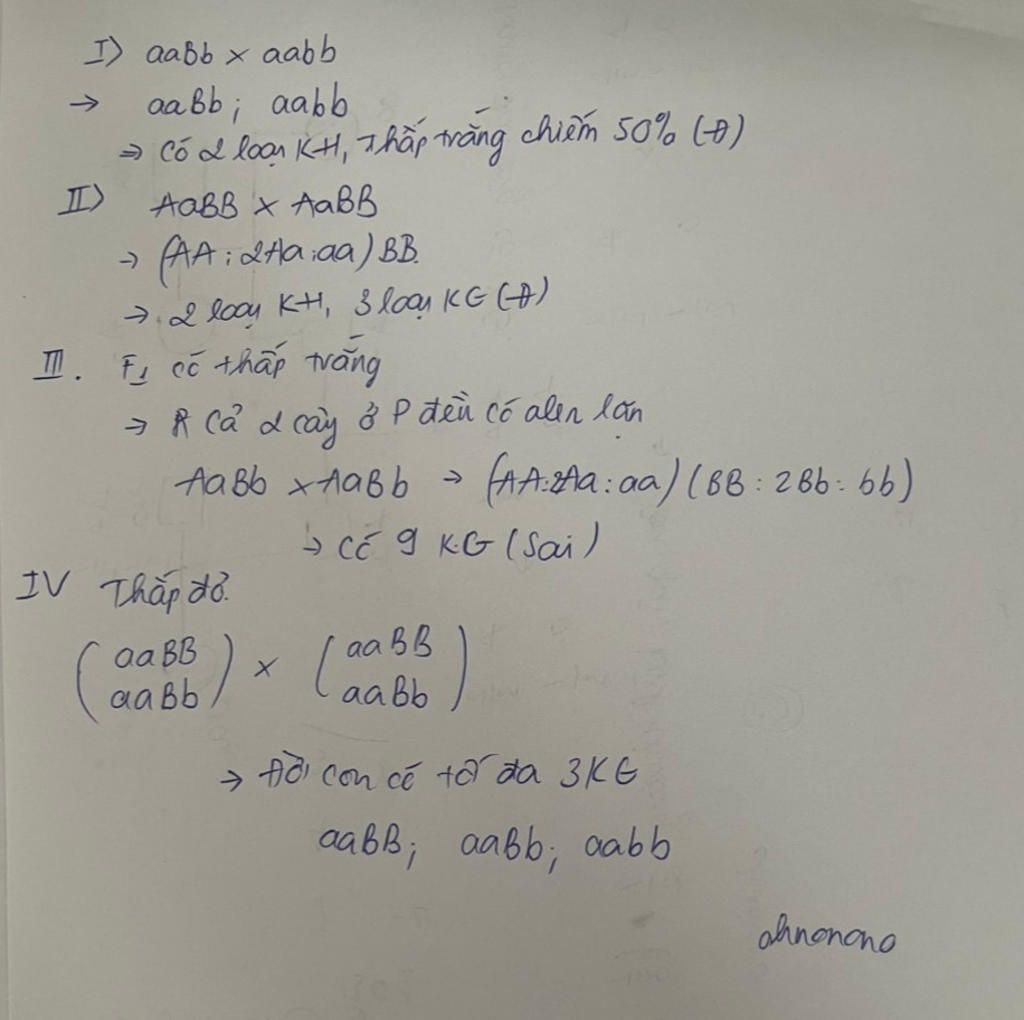 I) aaBb x aabb
→ aaBb; aabb
⇒ Có 2 loại KH, Thấp trắng chiếm 50% (Đ)
II) AaBB x AaBB
→ (AA: 2Aa: aa) BB.
→ 2 loại KH, 3 loại KG (Đ)
III. F1 có thấp trắng
⇒ Cả 2 cây ở P đều có alen lặn
AaBb x AaBb → (AA: 2Aa: aa) (BB: 2Bb: bb)
→ Có 9 KG (Sai)
IV Thấp đỏ.
(aaBB) x (aaBB)
(aaBb) (aaBb)
→ Đời con có tối đa 3KG
aaBB; aaBb; aabb
ohnonono